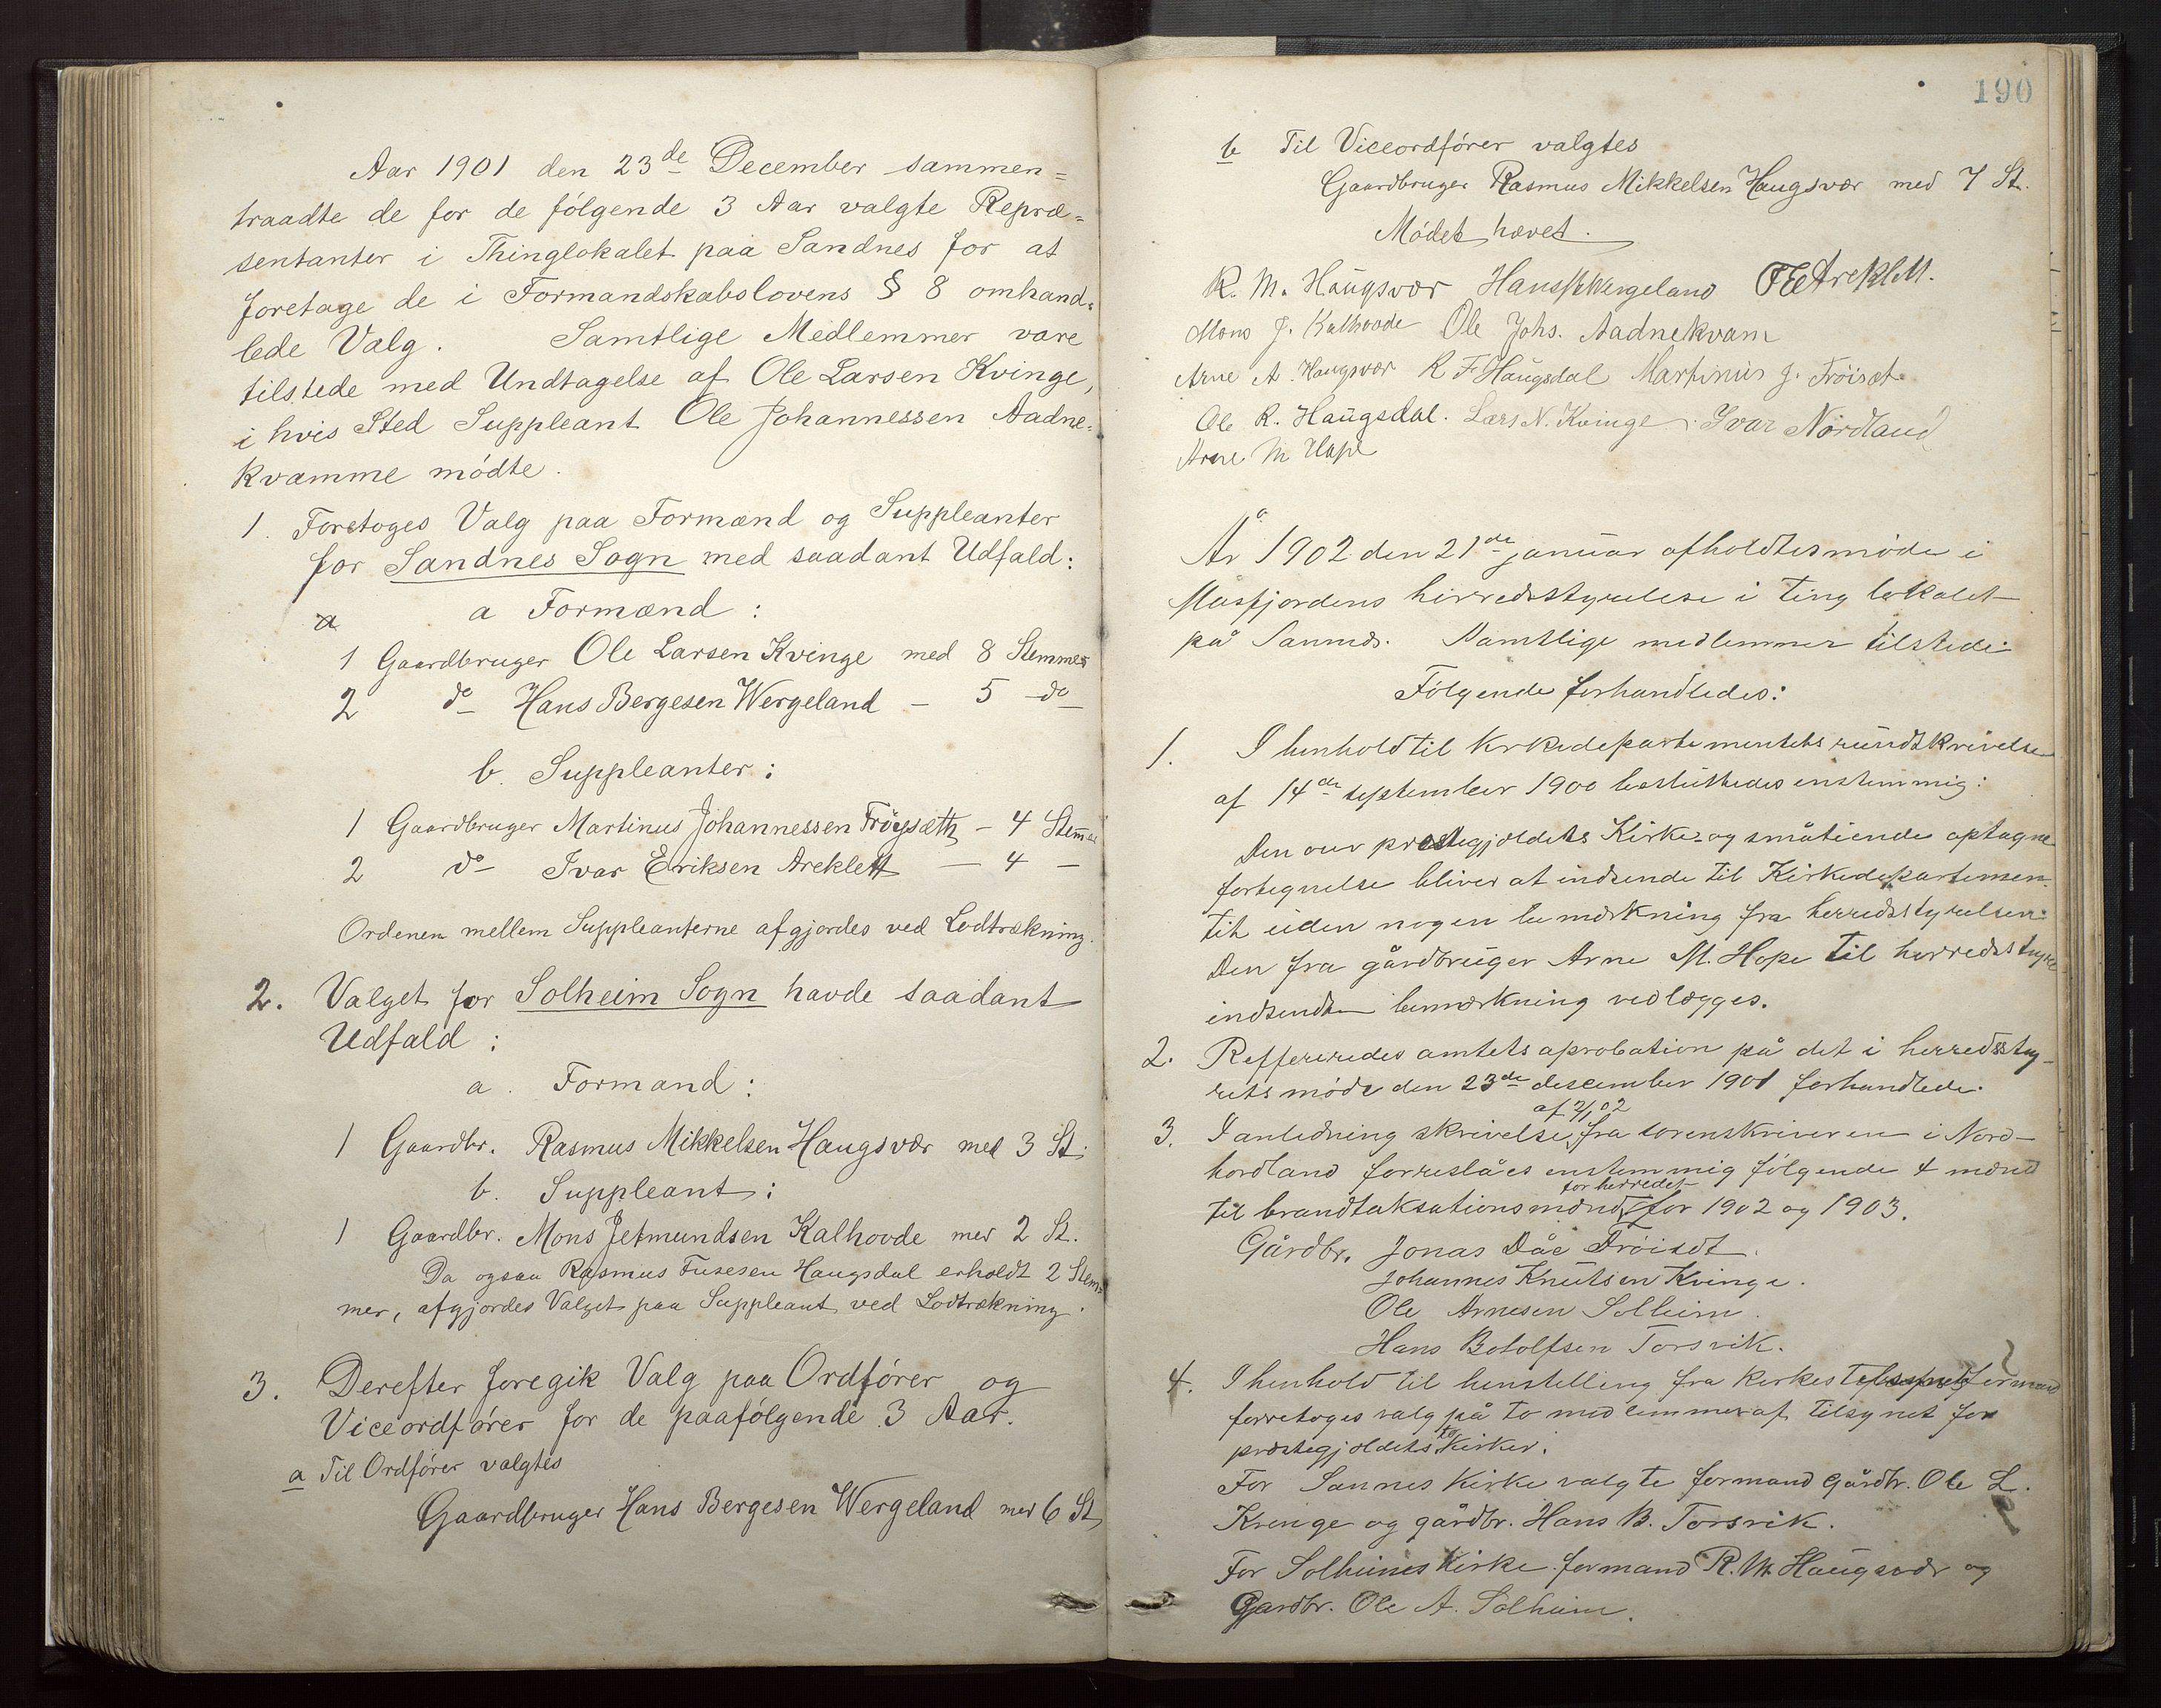 Aar 1901 den 23de December sammen=
traadte de for de følgende 3 Aar valgte Repræ=
sentanter i Thinglokalet paa Sandnes for at
foretage de i Formandskabslovens § 8 omhand=
lede Valg. Samtlige Medlemmer vare
tilstede med Undtagelse af Ole Larsen Kvinge,
i hvis Sted Suppleant Ole Johannessen Aadne=
kvamme mødte.
1. Foretoges Valg paa Formænd og Suppleanter
for Sandnes Sogn med saadant Udfald:
a a Formænd:
1 Gaardbruger Ole Larsen Kvinge med 8 Stemmer
2 do Hans Bergesen Wergeland - 5 do
b. Suppleanter:
1 Gaardbruger Martinus Johannessen Frøysæth - 4 Stemmer
2 do Ivar Eriksen Areklett - 4 -
Ordenen mellem Suppleanterne afgjordes ved Lodtrækning.
2. Valget for Solheim Sogn havde saadant
Udfald:
a. Formand:
1 Gaardbr. Rasmus Mikkelsen Haugsvær med 3 St.
b. Suppleant:
1 Gaardbr. Mons Jetmundsen Kalhovde med 2 St.
Da ogsaa Rasmus Fusesen Haugsdal erholdt 2 Stem=
mer, afgjordes Valget paa Suppleant ved Lodtrækning.
3. Derefter foregik Valg paa Ordfører og
Viceordfører for de paafølgende 3 Aar.
a Til Ordfører valgtes
Gaardbruger Hans Bergesen Wergeland med 6 St
190
b Til Viceordfører valgtes
Gaardbruger Rasmus Mikkelsen Haugsvær med 7 St.
Mødet hævet.
R. M. Haugsvær Hans B Wergeland Areklett.
Mons J. Kalhovde Ole Johs. Aadnekvam
Arne A. Haugsvær R F Haugsdal Martinus J. Frøiset
Ole R. Haugsdal. Lars N. Kvinge. Ivar Nordland
Arne M Hope
År 1902 den 21de januar afholdtes møde i
Masfjordens herredsstyrelse i ting lokalet
på Sannes. Samtlige medlemmer tilstede.
Følgende forhandledes:
1. I henhold til Kirkedepartementets rundskrivelse
af 14de september 1900 besluttedes enstemmig:
Den over prestegjeldets Kirke- og småtiende optagne
fortegnelse bliver at indsende til Kirkedepartemen-
tet uden nogen bemærkning fra herredsstyrelsen.
Den fra gårdbruger Arne M. Hope til herredsstyre
indsendte bemærkning vedlægges.
2. Reffereredes amtets aprobation på det i herredssty-
rets møde den 23de desember 1901 forhandlede.
af 2/1 02
3. I anledning skrivelse fra sorenskriveren i Nord-
hordland forreslåes enstemmig følgende 4 mænd
for herredet
til brandtaksationsmænd for 1902 og 1903.
Gårdbr. Jonas Dåe Frøiset.
Johannes Knutsen Kvinge.
Ole Arnesen Solheim.
Hans Botolfsen Torsvik.
4. I henhold til henstilling fra kirkes formand
forretoges valg på to medlemmer af tilsynet for
to
præstegjeldets kirker.
For Sannes kirke valgte formand gårdbr. Ole L.
Kvinge og gårdbr. Hans B. Torsvik.
For Solheims kirke formand R. M. Haugsvær og
Gardbr. Ole A. Solheim.